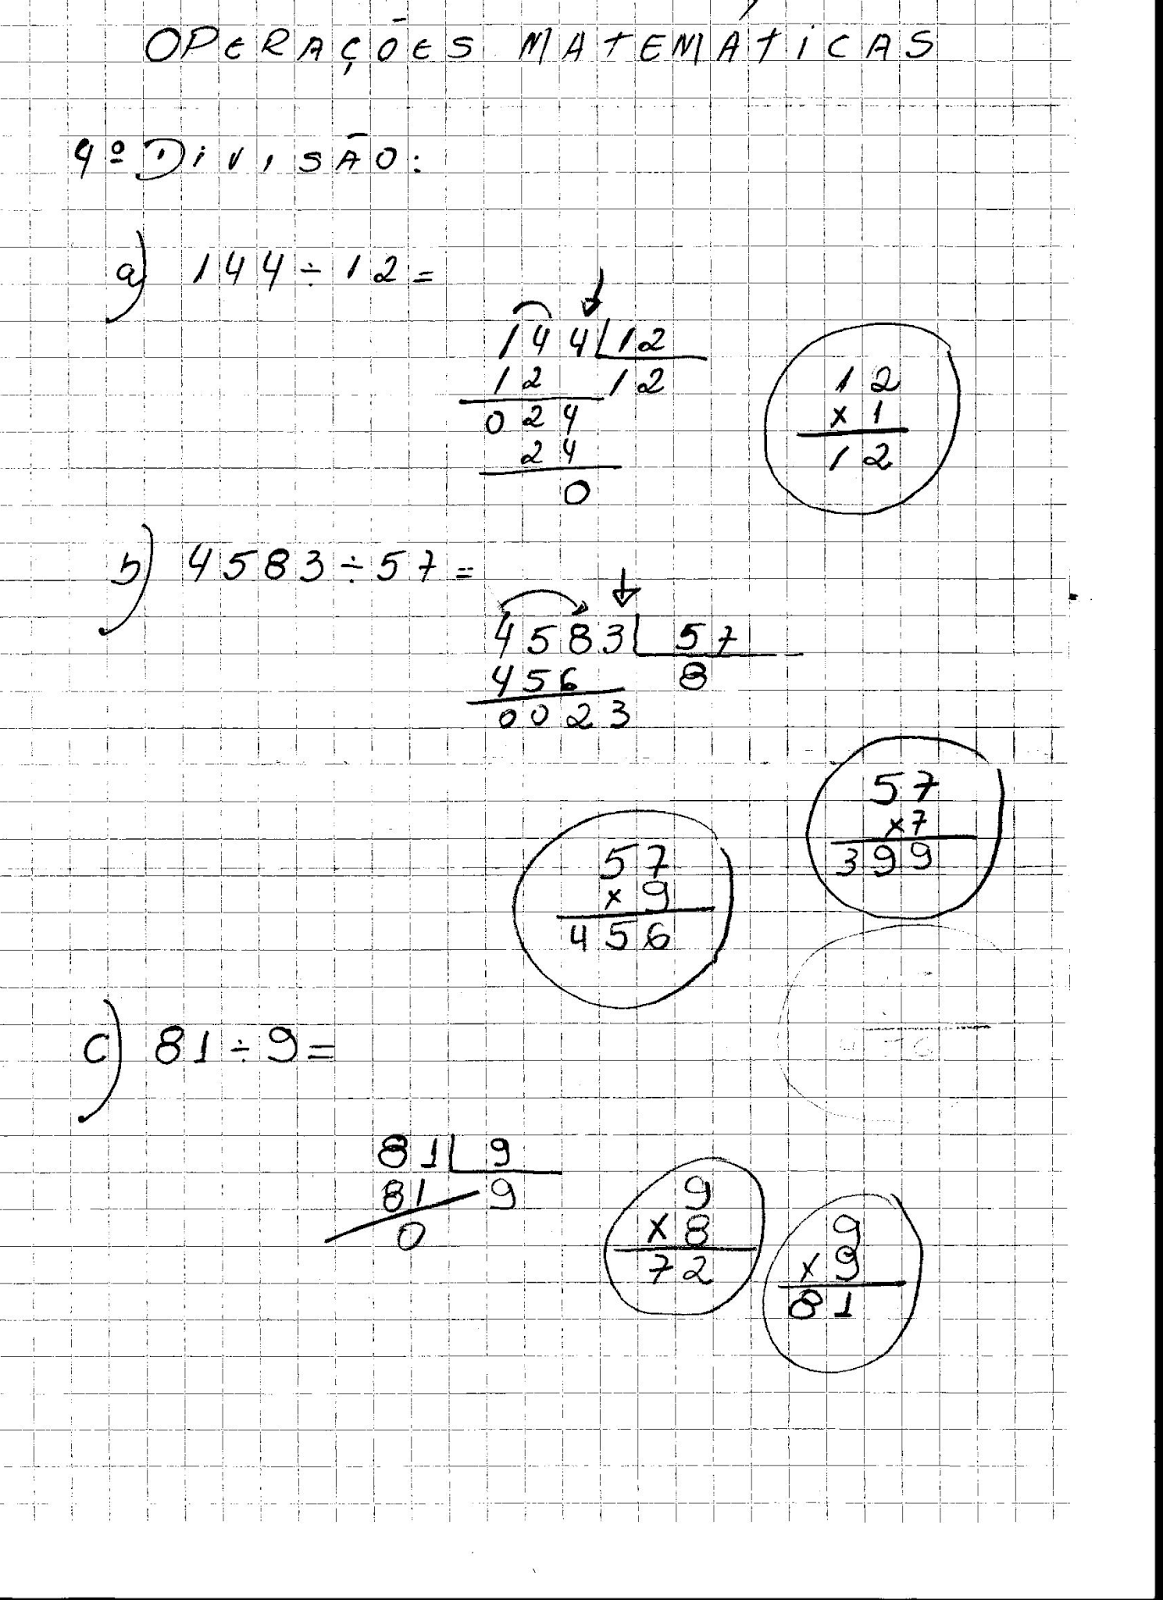 OPERAÇÕES MATEMÁTICAS
4º DIVISÃO:
a) 144÷12=
144 12
12 12
024
24
0
12
x 1
12
b) 4583÷57=
4583 57
456 8
0023
57
x7
399
57
x 9
456
c) 81÷9=
81 9
81 9
0
9
x 8
72
9
x 9
81